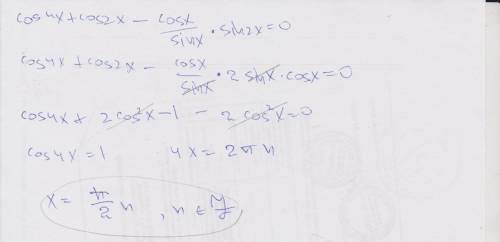 cos4x + cos2x − cosx/sinx · sin2x = 0
cos4x + cos2x − cosx/sinx · 2 sinx · cosx = 0
cos4x + 2cos²x − 1 − 2cos²x = 0
cos4x = 1 4x = 2πn
x = π/2 n , n ∈ Z